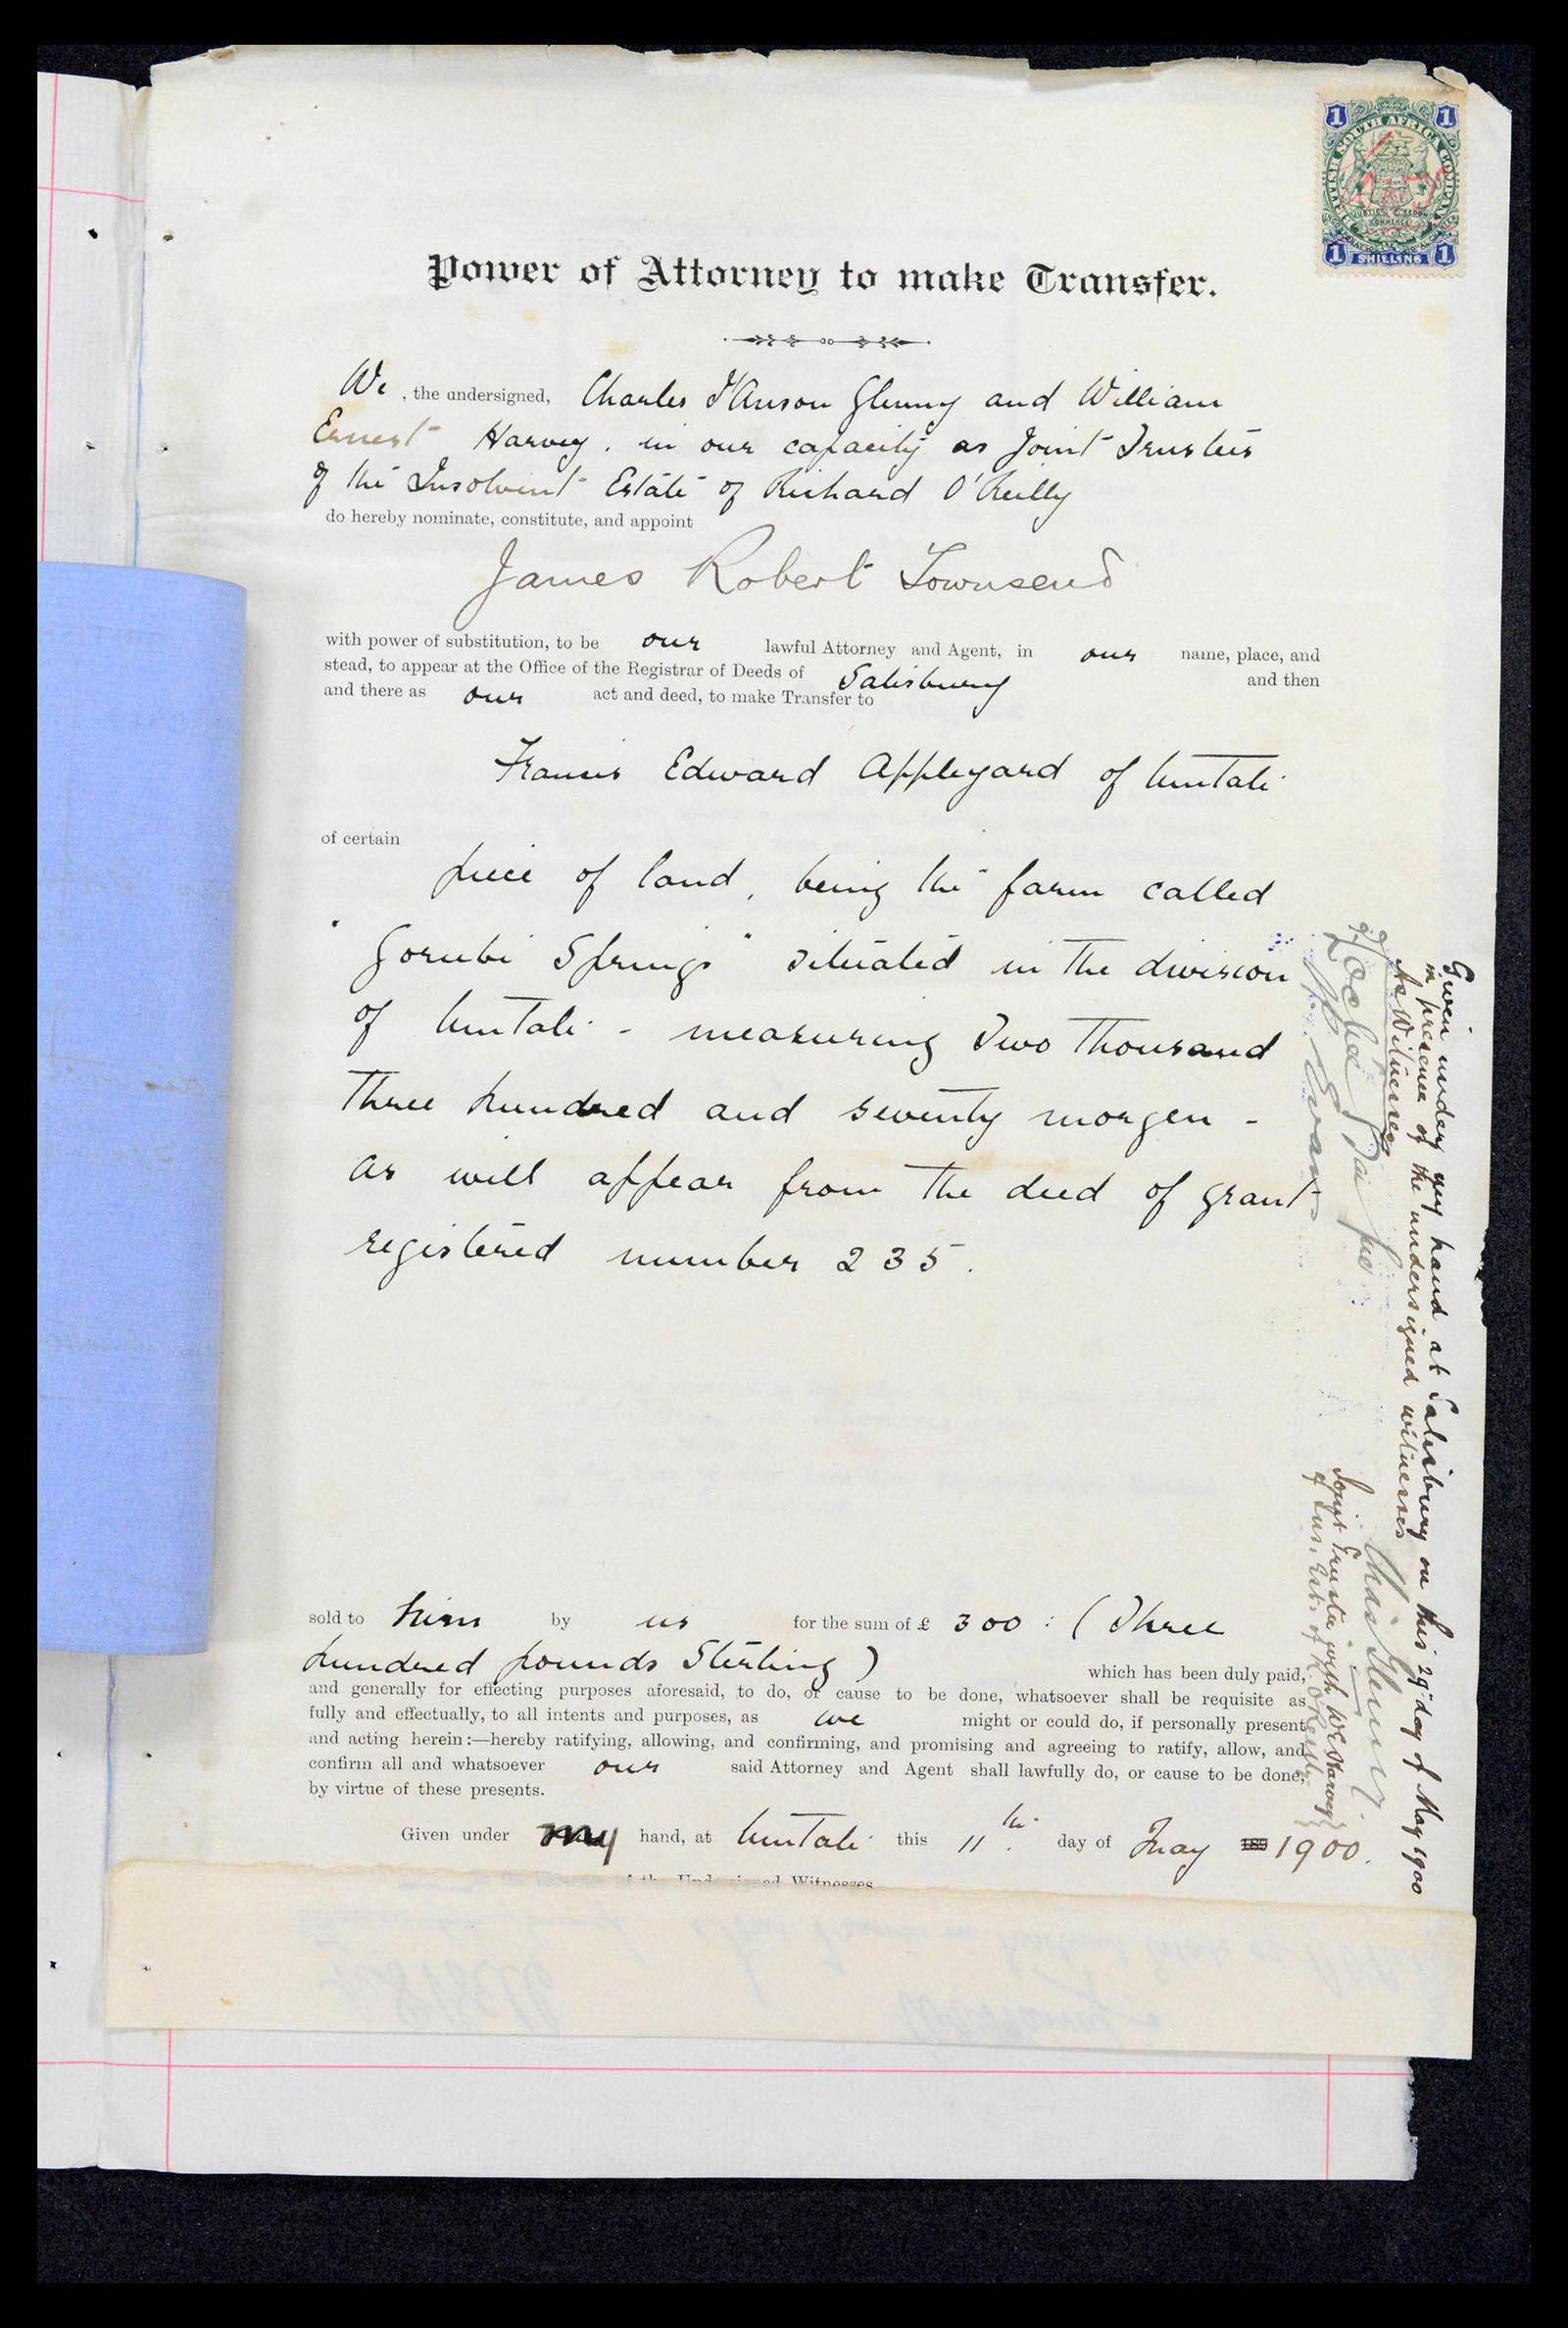 1 1
BRITISH SOUTH AFRICA COMPANY
JUSTICE FREEDOM
COMMERCE
1 SHILLING 1
Power of Attorney to make Transfer.
We, the undersigned, Charles I'Anson Glenny and William
Ernest Harvey. in our capacity as Joint Trustees
of the Insolvent Estate of Richard O'Reilly
do hereby nominate, constitute, and appoint
James Robert Townsend
with power of substitution, to be our lawful Attorney and Agent, in our name, place, and
stead, to appear at the Office of the Registrar of Deeds of Salisbury and then
and there as our act and deed, to make Transfer to
Francis Edward Appleyard of Umtali
of certain
piece of land, being the farm called
"Gorubi Springs" situated in the division
of Umtali - measuring Two Thousand
Three hundred and seventy morgen -
as will appear from the deed of grant
registered number 235.
sold to him by us for the sum of £ 300 : (Three
hundred pounds Sterling) which has been duly paid,
and generally for effecting purposes aforesaid, to do, or cause to be done, whatsoever shall be requisite as
fully and effectually, to all intents and purposes, as we might or could do, if personally present
and acting herein:—hereby ratifying, allowing, and confirming, and promising and agreeing to ratify, allow, and
confirm all and whatsoever our said Attorney and Agent shall lawfully do, or cause to be done,
by virtue of these presents.
Given under my hand, at Umtali this 11th. day of May 189 1900.
Witnesses
Given under my hand at Salisbury on this 29 day of May 1900
in presence of the undersigned witnesses
As Witnesses
Chas Glenny.
Joint Trustee with WE Harvey
of Ins. Est. of R O'Reilly
Evans